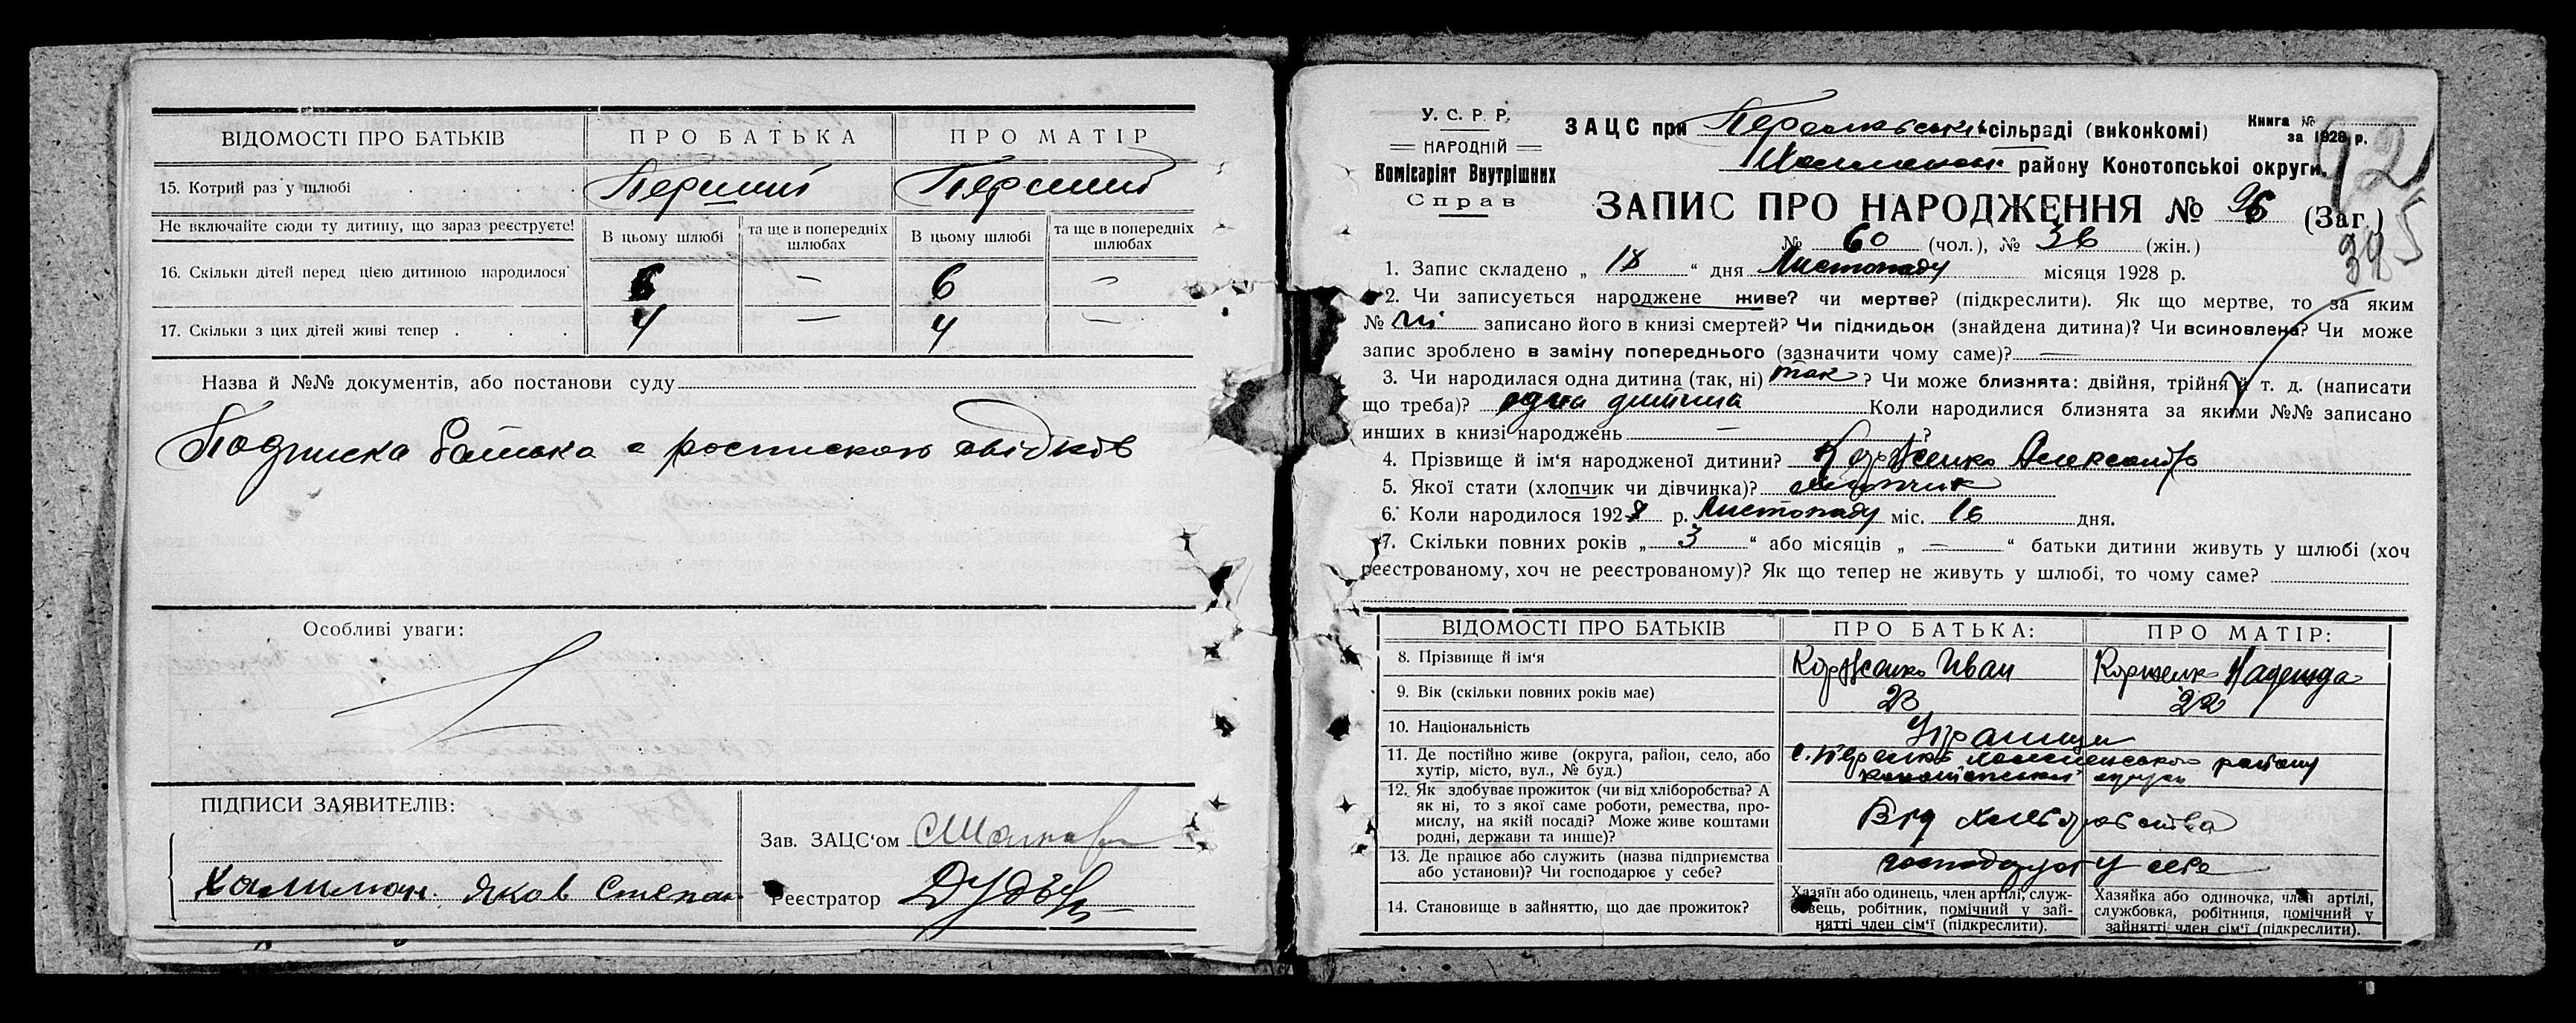 ВІДОМОСТІ ПРО БАТЬКІВ
ПРО БАТЬКА
ПРО МАТІР
15. Котрий раз у шлюбі
Перший
Перший
Не включайте сюди ту дитину, що зараз реєструєте!
В цьому шлюбі
та ще в попередніх шлюбах
В цьому шлюбі
та ще в попередніх шлюбах
16. Скільки дітей перед цією дитиною народилося
6 — 6 —
17. Скільки з цих дітей живі тепер
4 — 4 —
Назва й №№ документів, або постанови суду
Подписка батька с роспискою свідків
Особливі уваги:
ПІДПИСИ ЗАЯВИТЕЛІВ:
Яков Степан
Зав. ЗАЦС‘ом
Реєстратор
У. С. Р. Р.
НАРОДНІЙ
Комісаріят Внутрішних
Справ
ЗАЦС при сільраді (виконкомі)
Книга №
за 1928 р.
району Конотопської округи.
92
ЗАПИС ПРО НАРОДЖЕННЯ № 96 (Заг.)
№ 60 (чол.), № 36 (жін.)
1. Запис складено „ 18 “ дня Листопаду місяця 1928 р.
2. Чи записується народжене живе? чи мертве? (підкреслити). Як що мертве, то за яким
№ ні записано його в книзі смертей? Чи підкидьок (знайдена дитина)? Чи всиновлена? Чи може
запис зроблено в заміну попереднього (зазначити чому саме)? —
3. Чи народилася одна дитина (так, ні) так ? Чи може близнята: двійня, трійня й т. д. (написати
що треба)? одна дитина Коли народилися близнята за якими №№ записано
инших в книзі народжень — ?
4. Прізвище й ім‘я народженої дитини? Корженко Александр
5. Якої стати (хлопчик чи дівчинка)? хлопчик
6. Коли народилося 1928 р. Листопаду міс. 16 дня.
7. Скільки повних років „ 3 “ або місяців „ — “ батьки дитини живуть у шлюбі (хоч
реєстрованому, хоч не реєстрованому)? Як що тепер не живуть у шлюбі, то чому саме?
ВІДОМОСТІ ПРО БАТЬКІВ
ПРО БАТЬКА:
ПРО МАТІР:
8. Прізвище й ім‘я
Корженко Иван
Надежда
9. Вік (скільки повних років має)
23
22
10. Національність
Українці
11. Де постійно живе (округа, район, село, або
хутір, місто, вул., № буд.)
району
округи
12. Як здобуває прожиток (чи від хліборобства? А
як ні, то з якої саме роботи, ремества, про-
мислу, на якій посаді? Може живе коштами
родні, держави та инше)?
Від хліборобства
13. Де працює або служить (назва підприємства
або установи)? Чи господарює у себе?
господарює у себе
14. Становище в зайняттю, що дає прожиток?
Хазяїн або одинець, член артілі, служ-
бовець, робітник, помічний у зай-
нятті член сім‘ї (підкреслити).
Хазяйка або одиночка, член артілі,
службовка, робітниця, помічний у
зайнятті член сім‘ї (підкреслити).